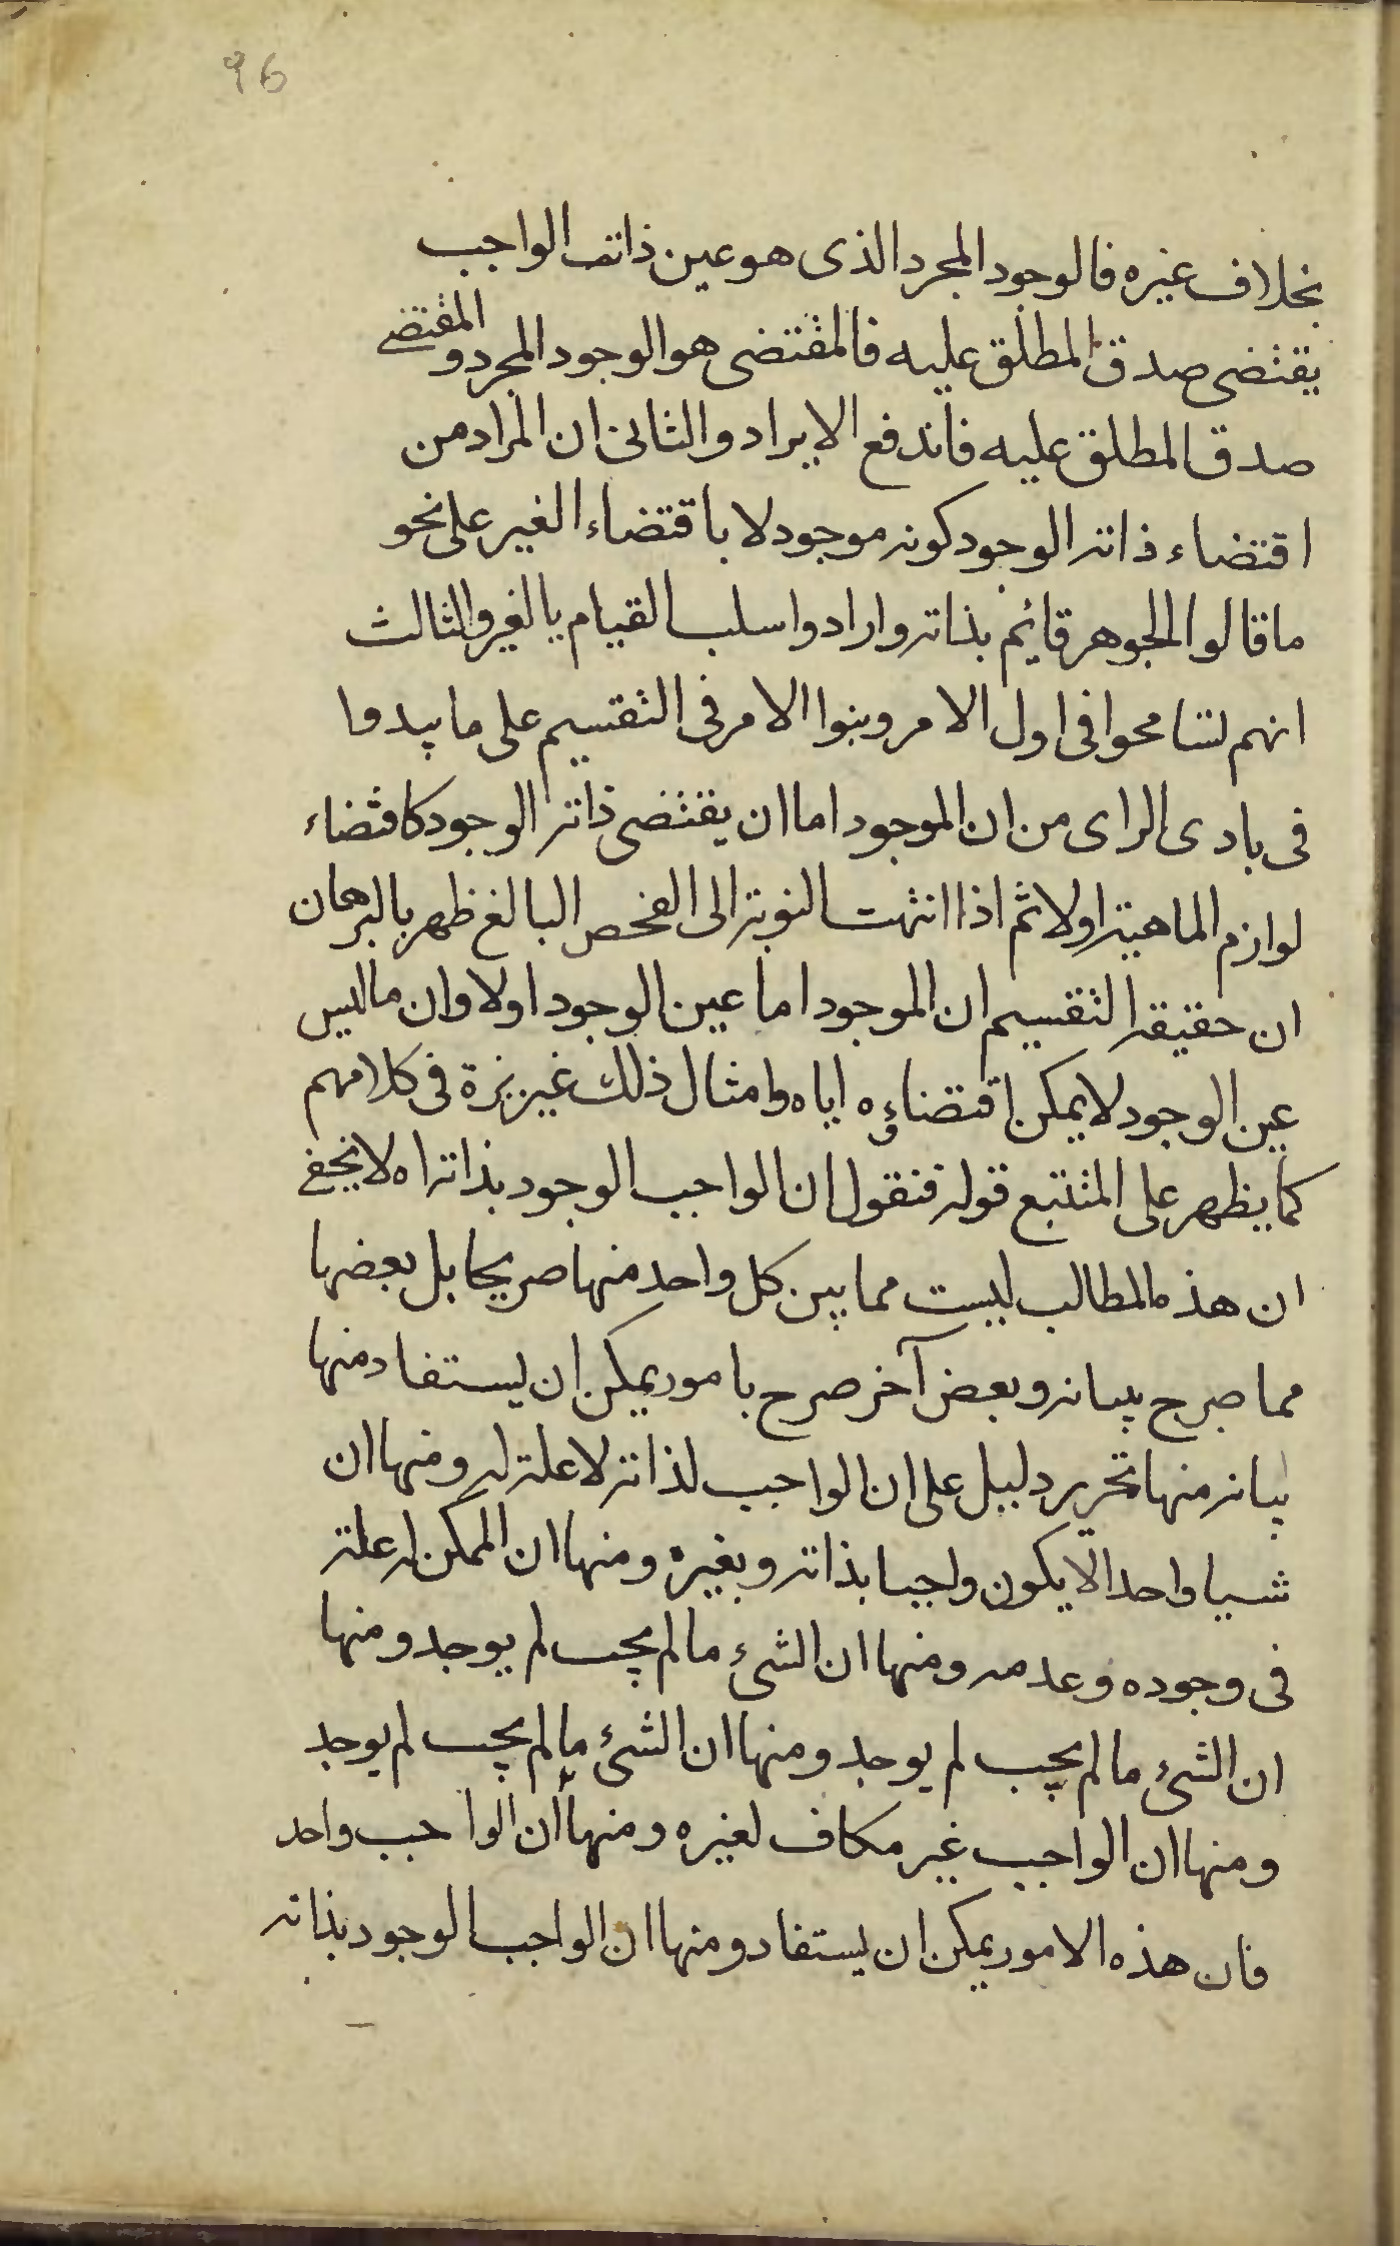 96
بخلاف غيره فالوجود المجرد الذى هو عين ذات الواجب
يقتضى صدق المطلق عليه فالمقتضى هو الوجود المجرد و المقتضى
صدق المطلق عليه فاندفع الايراد والثانى ان المراد من
اقتضاء ذاته الوجود كونه موجود لا باقتضاء الغير على نحو
ما قالوا الجوهر قائم بذاته وارادوا سلب القيام بالغير والثالث
انهم تسامحوا فى اول الامر وبنوا الامر فى التقسيم على ما يبدوا
فى بادى الراى من ان الموجود اما ان يقتضى ذاته الوجود كاقتضاء
لوازم الماهية اولا ثم اذا انتهت النوبة الى الفحص البالغ ظهر بالبرهان
ان حقيقة التقسيم ان الموجود اما عين الوجود اولا وان ما ليس
عين الوجود لا يمكن اقتضاؤه اياه وامثال ذلك غير نزرة فى كلامهم
كما يظهر على المتتبع قوله فنقول ان الواجب الوجود بذاته اه لا يخفى
ان هذه المطالب ليست مما يبين كل واحد منها صريحا بل بعضها
مما صرح ببيانه وبعض آخر صرح بامور يمكن ان يستفاد منها
بيانه منها تحرير دليل على ان الواجب لذاته لا علة له ومنها ان
شيا واحدا لا يكون واجبا بذاته وبغيره ومنها ان الممكن له علة
فى وجوده وعدمه ومنها ان الشئ ما لم يجب لم يوجد ومنها
ان الشئ ما لم يجب لم يوجد ومنها ان الشئ ما لم يجب لم يوجد
ومنها ان الواجب غير مكاف لغيره ومنها ان الواجب واحد
فان هذه الامور يمكن ان يستفاد ومنها ان الواجب الوجود بذاته